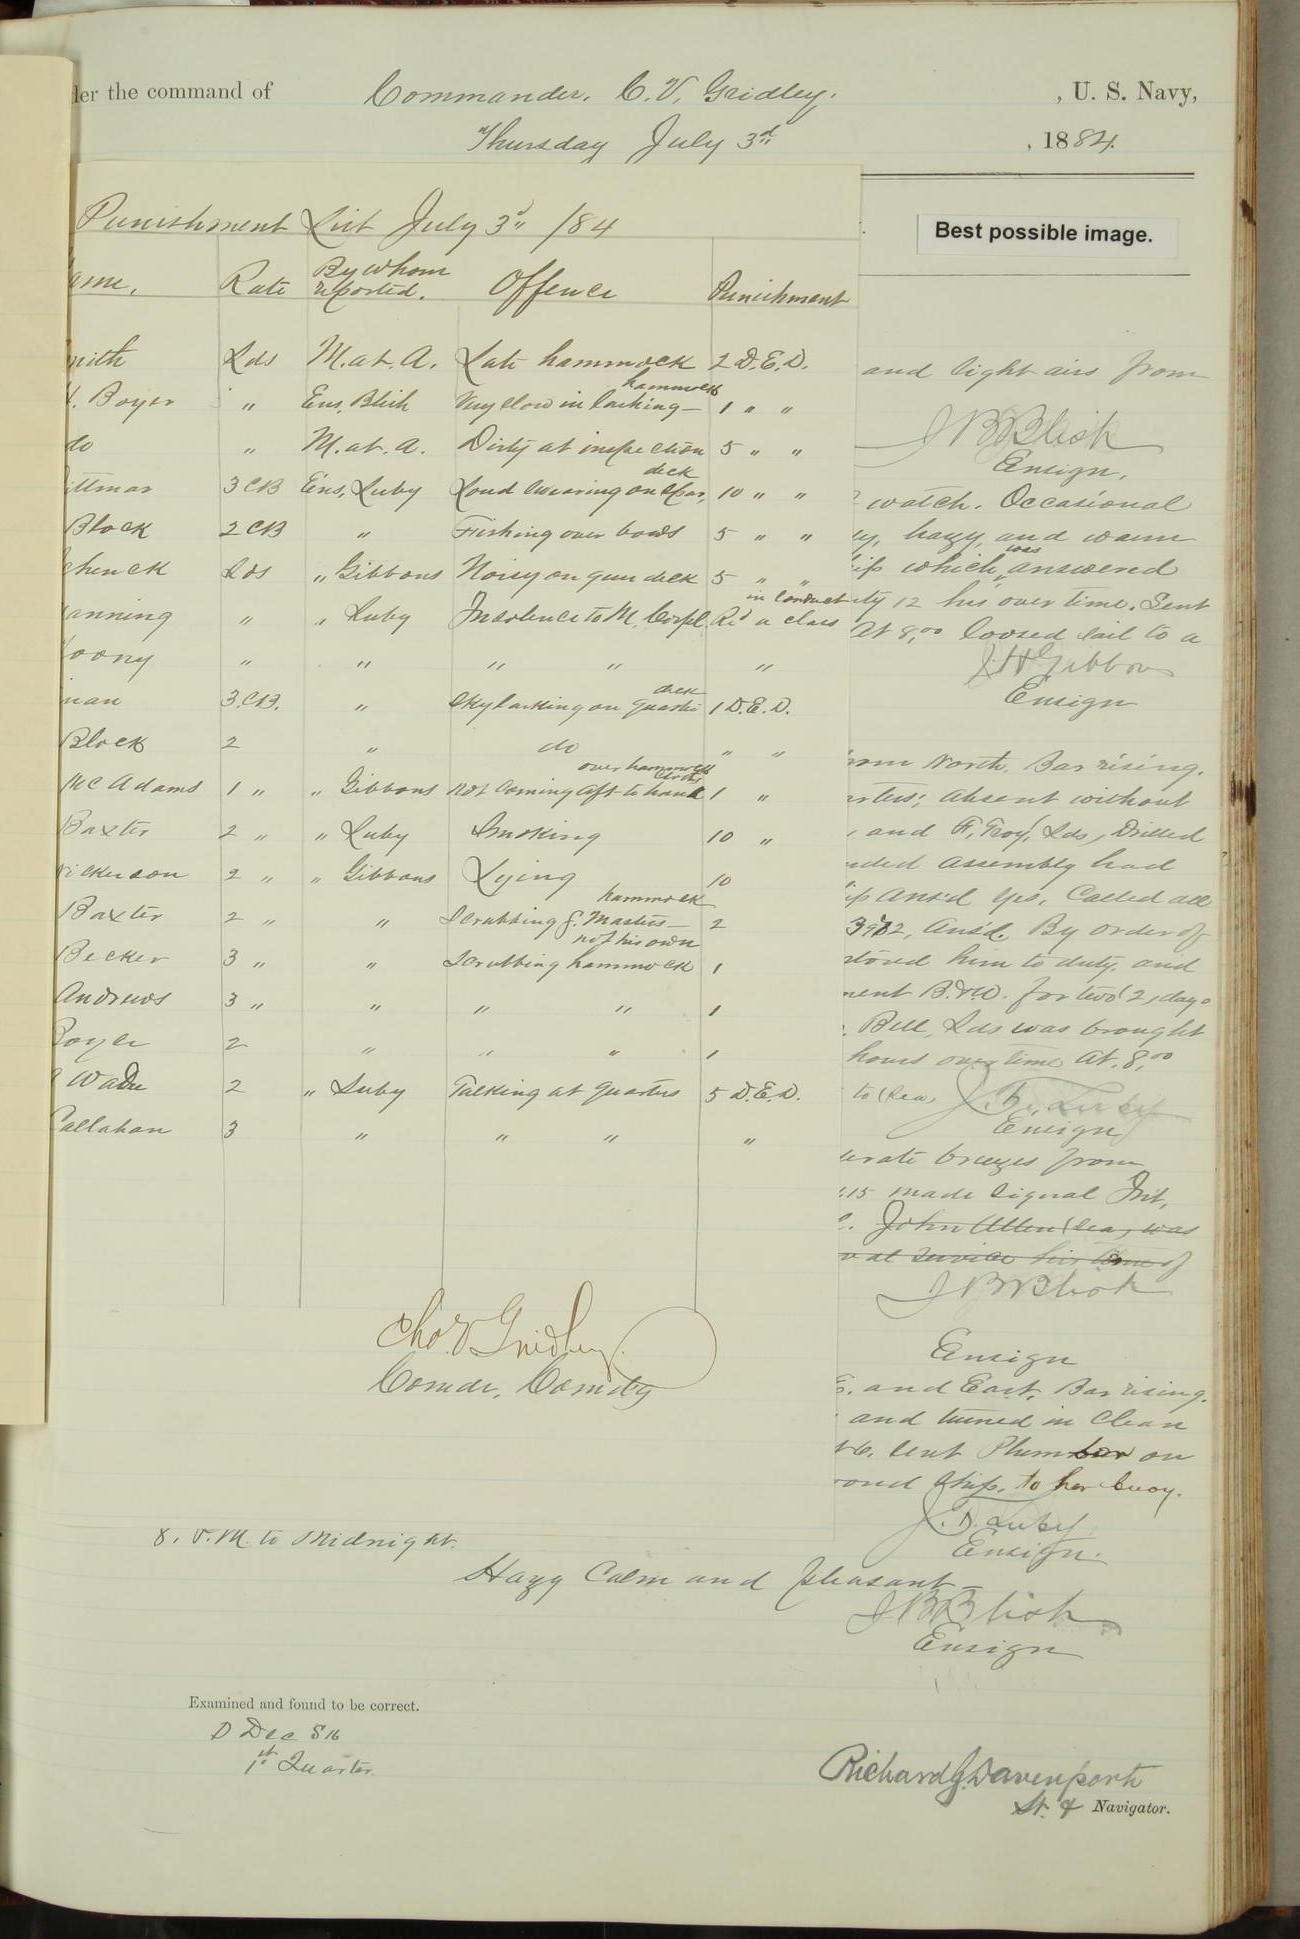 der the command of Commander. C. V. Gridley. , U. S. Navy,
Thursday July 3d , 1884.
Best possible image.
Punishment List July 3d /84
ame, Rate By whom reported. Offence Punishment
mith Lds M. at. A. Late hammock 2 D.E.D.
. Boyer " Ens. Blish Very slow in lashing hammock 1 " "
do " M. at. A. Dirty at inspection 5 " "
ittmar 3 CB Ens. Luby Loud swearing on Spar deck 10 " "
Block 2 CB " Fishing over bows 5 " "
chenck Lds " Gibbons Noisy on gun deck 5 " "
anning " " Luby Insolence to M. Corpl. Rd a class in conduct
oony " " " " "
nan 3.CB. " Skylarking on quarter deck 1 D.E.D.
Block 2 " do " "
McAdams 1 " " Gibbons not coming aft to hand over hammock cloths 1 "
Baxter 2 " " Luby Smoking 10 "
ickerson 2 " " Gibbons Lying 10
Baxter 2 " " Scrubbing S. Masters hammock 2
Becker 3 " " Scrubbing hammock not his own 1
Andrews 3 " " " " 1
Boyer 2 " " " 1
Wade 2 " Luby Talking at quarters 5 D.E.D.
Callahan 3 " " " "
Chas V Gridley
Comdr, Comdg
and light airs from
J B Blish
Ensign,
watch. Occasional
y, hazy, and warm
ip which was answered
ity 12 hrs over time. Sent
At 8,00 loosed sail to a
J. H Gibbons
Ensign
rom North. Bar rising.
rters; absent without
, and F. Troy, Lds, Drilled
nded assembly had
ip Ans'd yes, Called all
3972, Ans'd. By order of
stored him to duty. and
ment B.&W. for two (2) days
. Bell, Lds was brought
hours over time At. 8,00
to (Sea,
J. F. Luby
Ensign
erate breezes from
.15 made signal Int,
John Allen (Sea, was
val service his time of
J B Blish
Ensign
E. and East. Bar rising.
and turned in clean
sent Plumber on
ond ship, to her buoy.
J. F. Luby
Ensign.
8. P.M. to Midnight.
Hazy Calm and pleasant —
J B Blish
Ensign
Examined and found to be correct.
D Dec S 16
1st Quarter.
Richard G. Davenport
Lt. & Navigator.